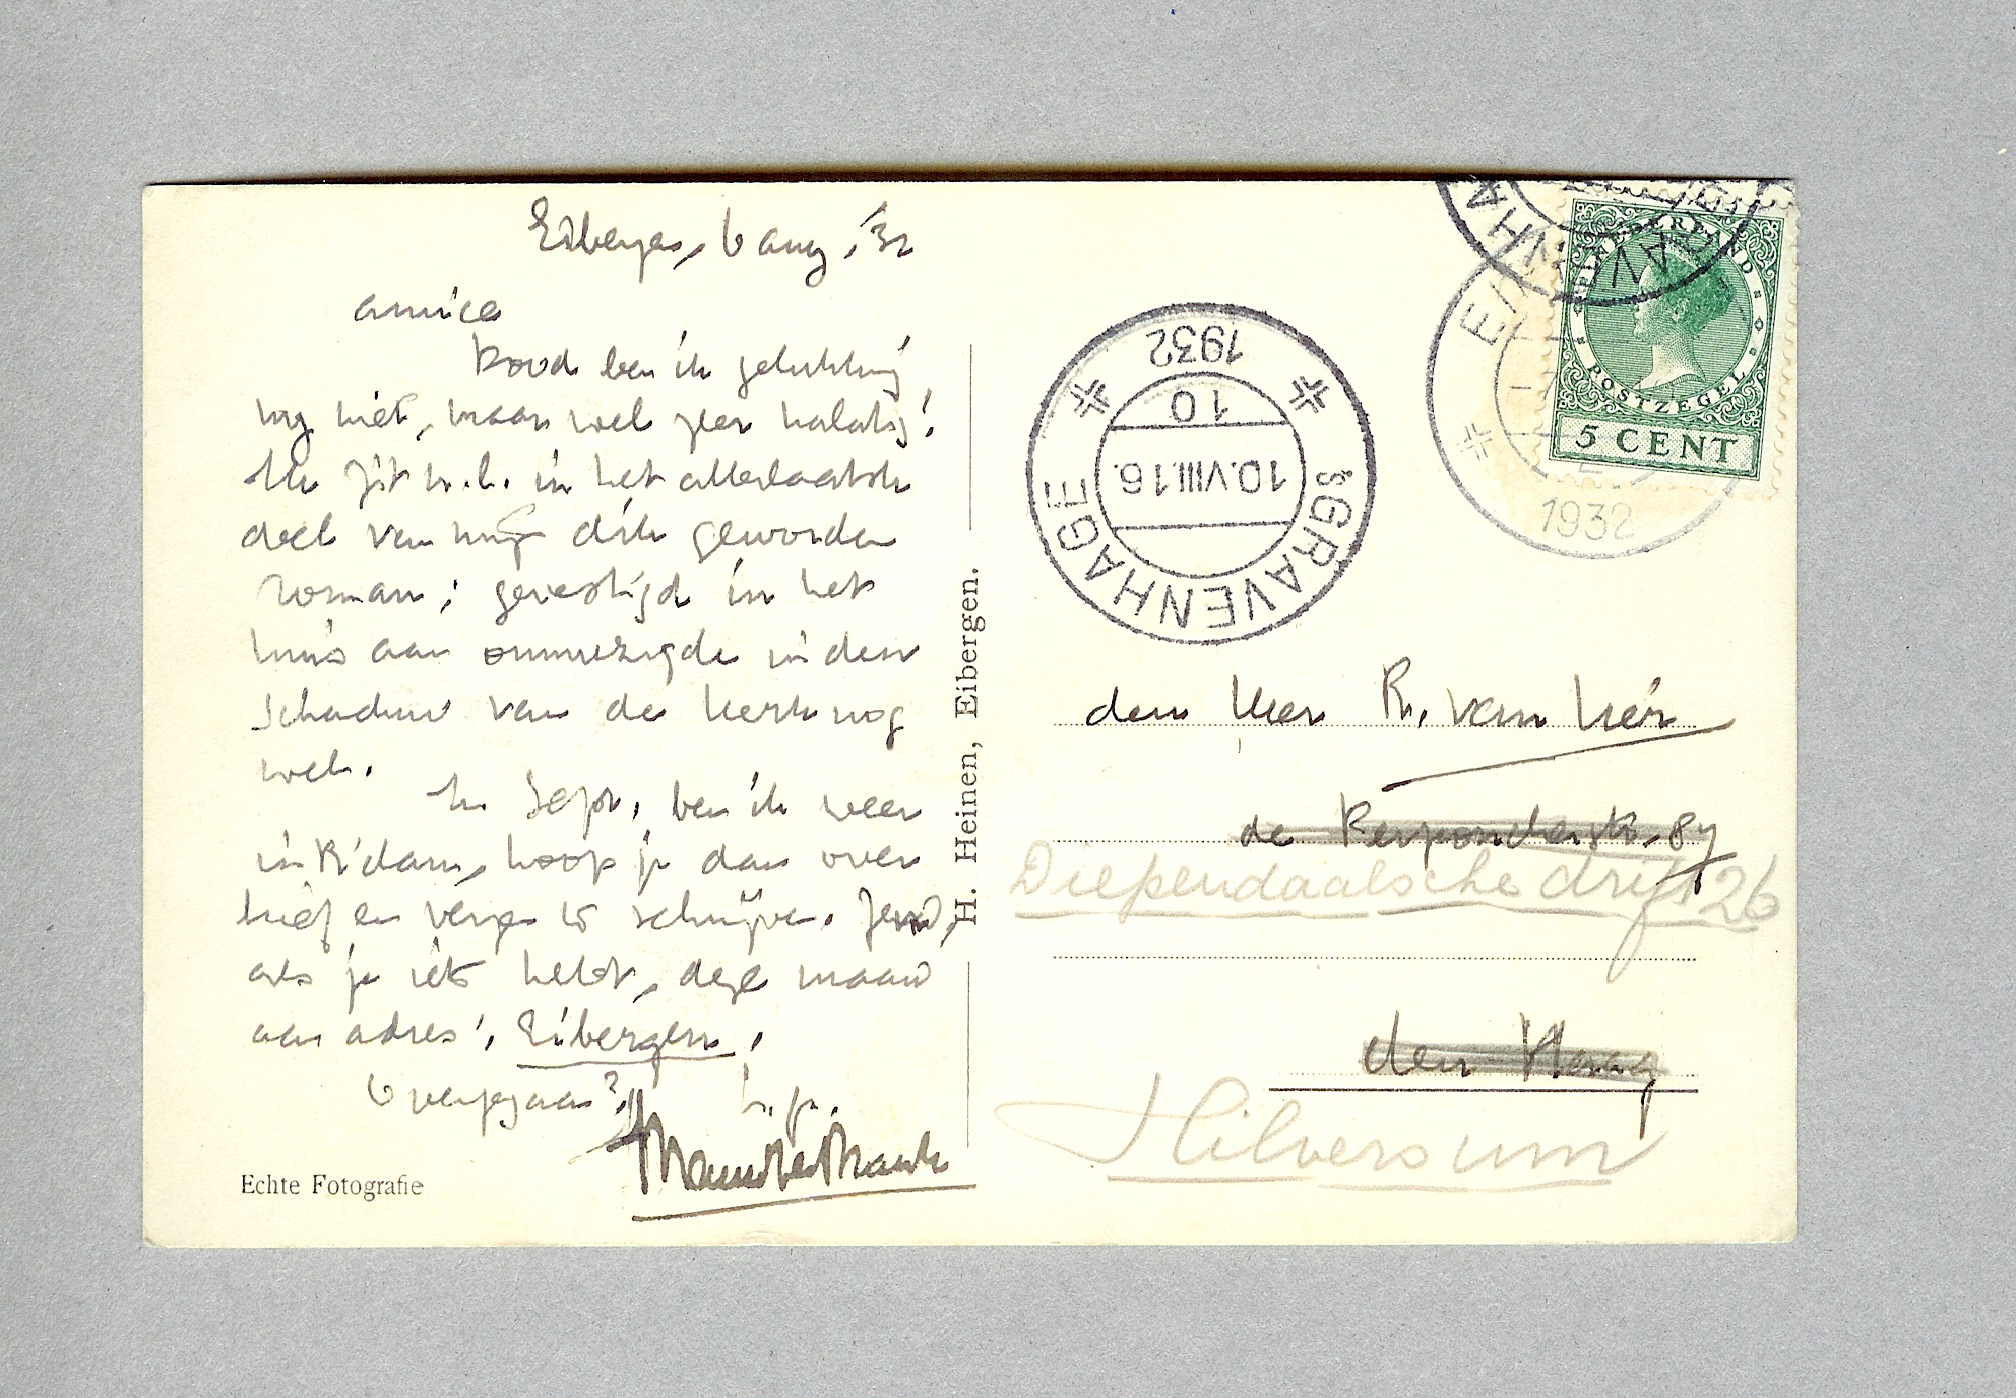 Eibergen, 6 aug. '32
amice
Kwad ben ik gelukkig
nog niet, maar wel zeer nalatig!
Ik zit n.l. in het allerlaatste
deel van mijn dik geworden
roman; gevestigd in het
huis aan ommezijde in den
schaduw van de kerk nog
wel.
In Sept. ben ik weer
in R'dam, hoop je dan over
hief en verzen te schrijven. Zend,
als je iets hebt, deze maand
aan adres: Eibergen.
O vergaan? h. gr.
Echte Fotografie
H. Heinen, Eibergen.
'sGRAVENHAGE
10.VIII.16.
10
1932
1932
NEDERLAND
POSTZEGEL
5 CENT
den Heer R. van Lier
de 89
Diependaalsche drift 26
den Haag
Hilversum